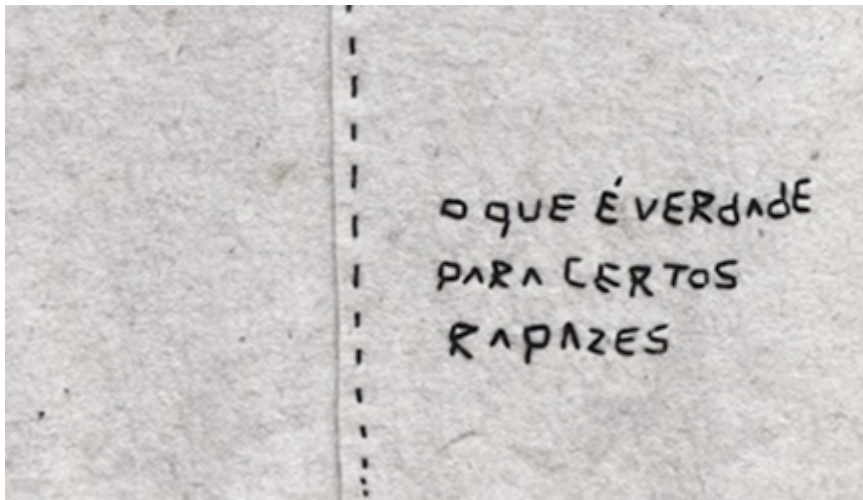 O QUE É VERdAdE
PARA CERTOS
RAPAZES